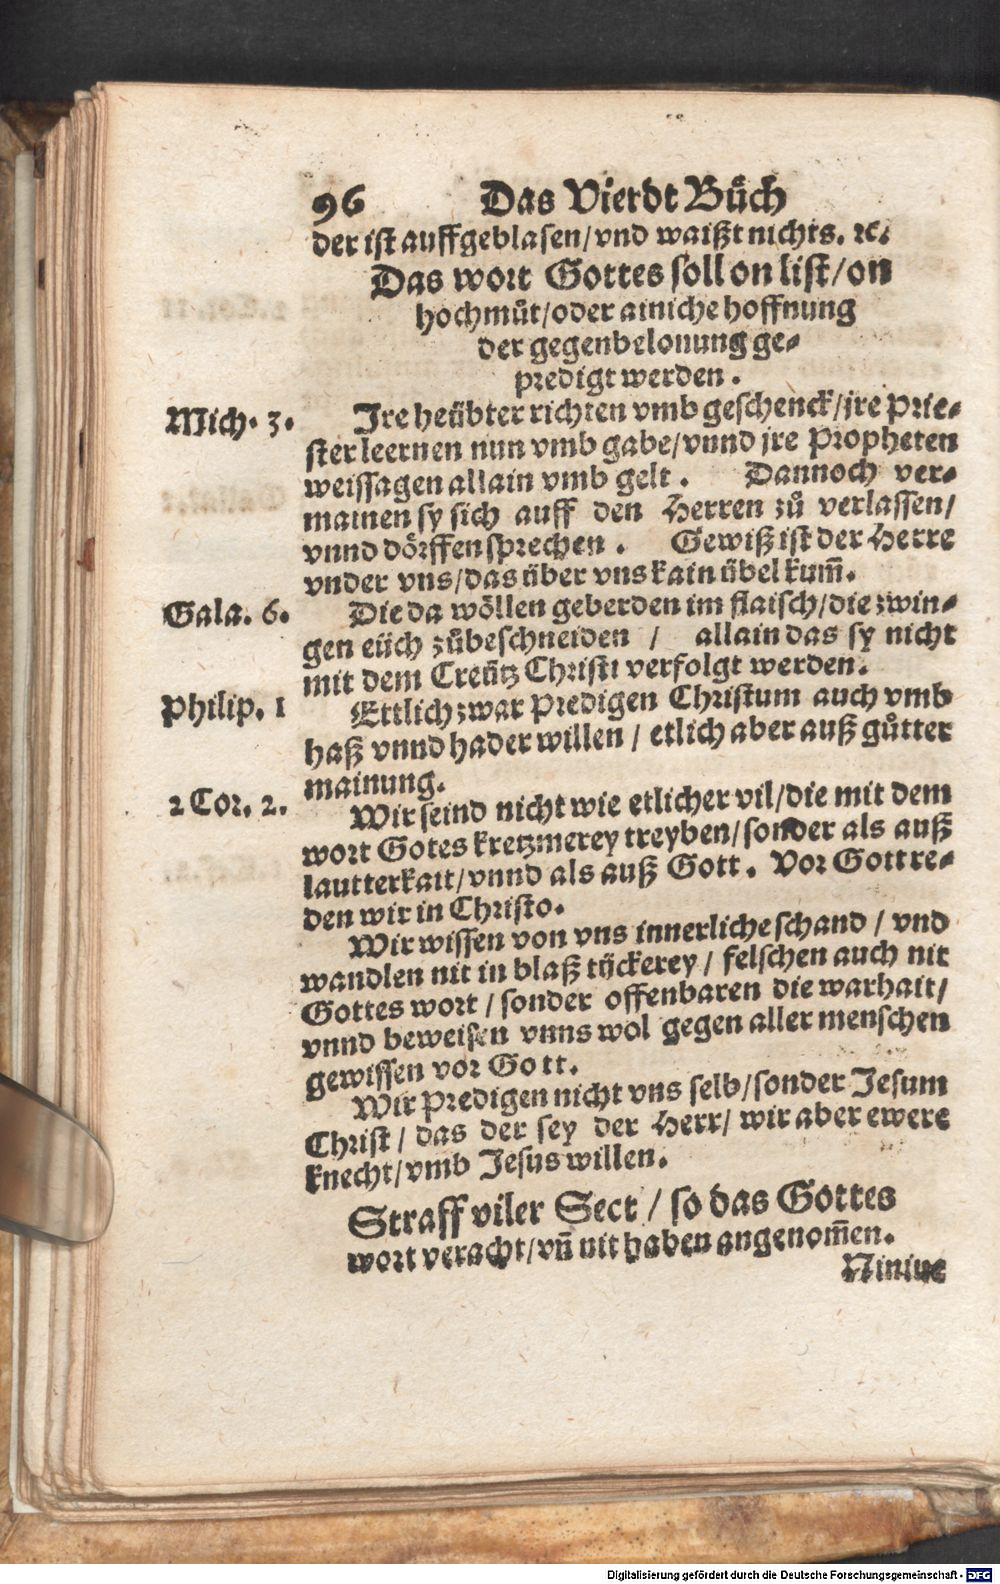 96 Das Vierdt Bůch
der ist auffgeblasen/vnd waißt nichts. ꝛc.
Das wort Gottes soll on list/on
hochmůt/oder ainiche hoffnung
der gegenbelonung ge-
predigt werden.
Mich. 3. Jre heübter richten vmb geschenck/jre Prie-
ster leernen nun vmb gabe/vnnd jre Propheten
weissagen allain vmb gelt. Dannoch ver-
mainen sy sich auff den Herren zů verlassen/
vnnd dörffen sprechen. Gewiß ist der Herre
vnder vns/das über vns kain übel kum̃.
Gala. 6. Die da wöllen geberden im flaisch/die zwin-
gen eüch zůbeschneiden / allain das sy nicht
mit dem Creütz Christi verfolgt werden.
Philip. 1 Ettlich zwar Predigen Christum auch vmb
haß vnnd hader willen / etlich aber auß gůtter
mainung.
2 Cor. 2. Wir seind nicht wie etlicher vil/die mit dem
wort Gotes kretzmerey treyben/sonder als auß
lautterkait/vnnd als auß Gott. Vor Gott re-
den wir in Christo.
Wir wissen von vns innerliche schand / vnd
wandlen nit in blaß tückerey / felschen auch nit
Gottes wort / sonder offenbaren die warhait/
vnnd beweisen vnns wol gegen aller menschen
gewissen vor Gott.
Wir Predigen nicht vns selb/sonder Jesum
Christ / das der sey der Herr/ wir aber ewere
knecht/vmb Jesus willen.
Straff viler Sect / so das Gottes
wort veracht/vñ nit haben angenom̃en.
Niniue
Digitalisierung gefördert durch die Deutsche Forschungsgemeinschaft - DFG